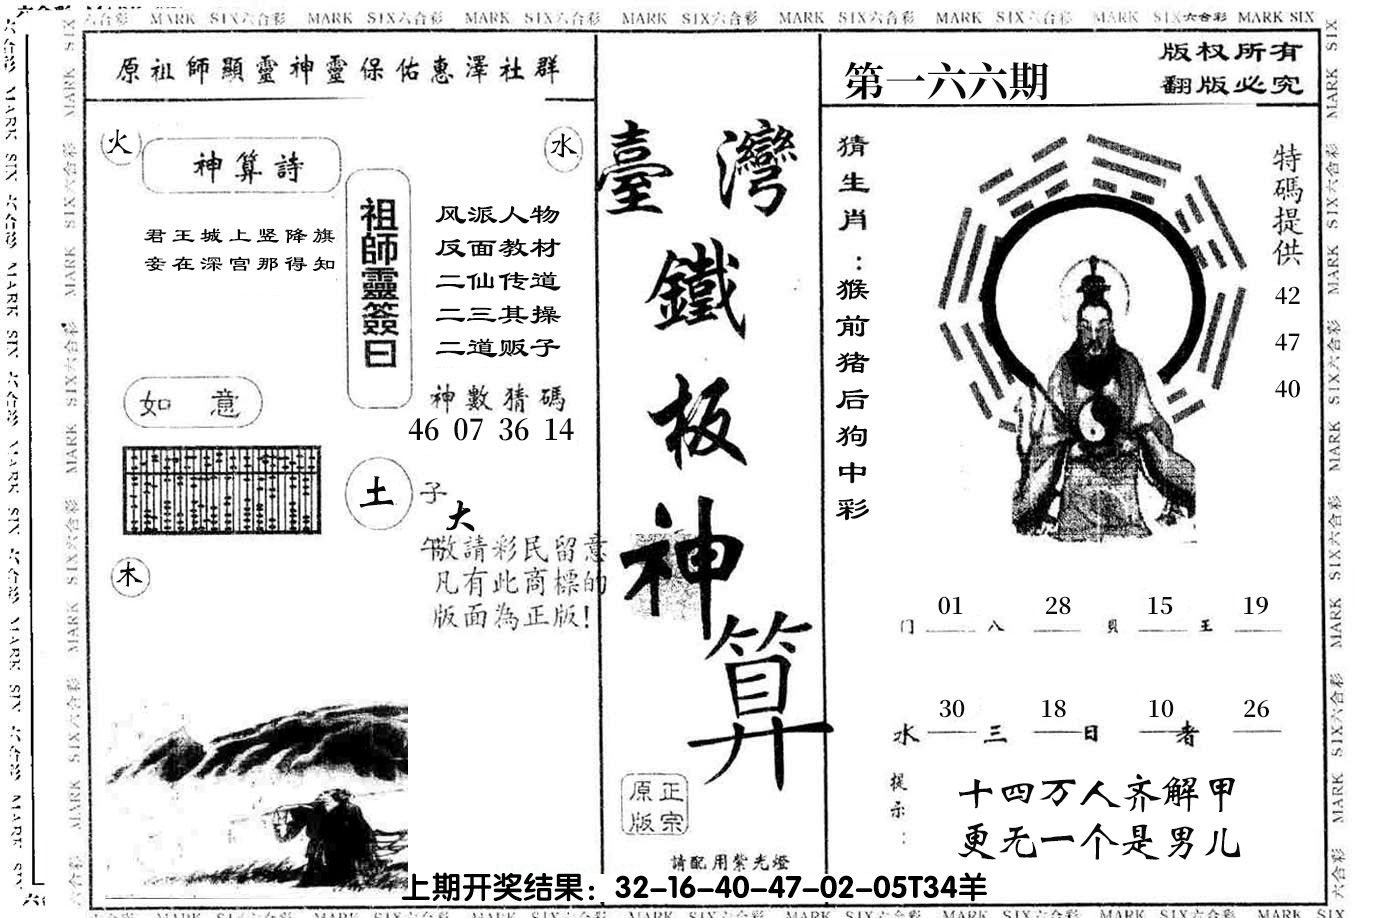 六合彩 MARK SIX六合彩 MARK SIX六合彩 MARK SIX六合彩 MARK SIX六合彩 MARK SIX六合彩 MARK SIX六合彩 MARK SIX六合彩 MARK SIX
原祖師顯靈神靈保佑惠澤社群
火
水
神算詩
君王城上竖降旗
妾在深宫那得知
祖師靈簽曰
风派人物
反面教材
二仙传道
二三其操
二道贩子
神數猜碼
46 07 36 14
如意
土
子
大
午
敬請彩民留意
凡有此商標的
版面為正版!
木
臺灣
鐵
板
神
算
正宗
原版
請配用紫光燈
第一六六期
版权所有
翻版必究
猜生肖:猴前猪后狗中彩
特碼提供
42
47
40
01 28 15 19
门 八 貝 王
30 18 10 26
水 三 日 者
提示:
十四万人齐解甲
更无一个是男儿
上期开奖结果：32-16-40-47-02-05T34羊